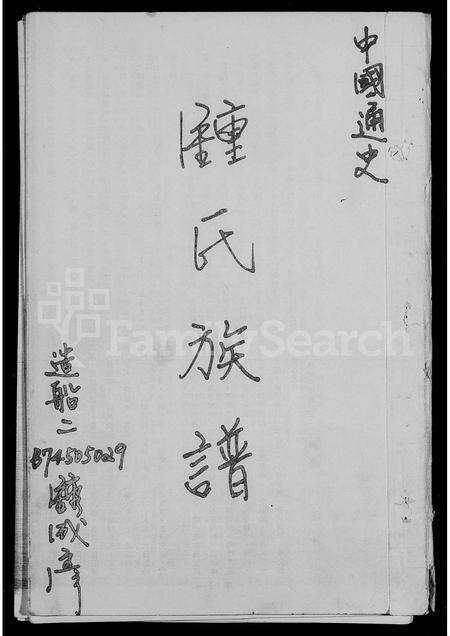 中國通史
鍾氏族譜
造船二
B74505029
鍾成
FamilySearch